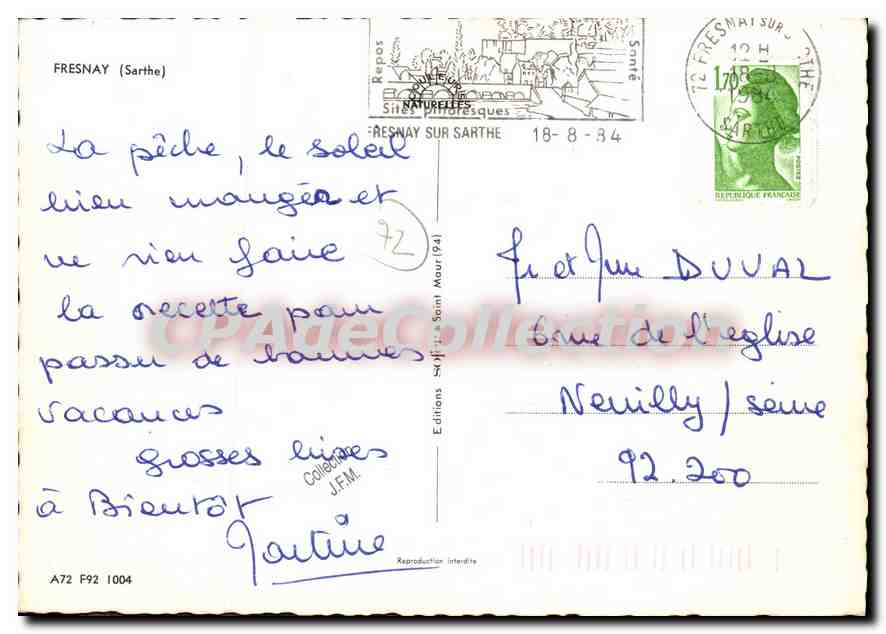 FRESNAY (Sarthe)
La pêche, le soleil
bien manger et
ne rien faire
la recette pour
passer de bonnes
vacances
grosses bises
à Bientôt
Martine
A72 F92 1004
72
Collection
J.F.M.
Reproduction interdite
Editions à Saint Maur (94)
Repos
Santé
COULEURS
NATURELLES
Sites pittoresques
FRESNAY SUR SARTHE 18-8-84
72 FRESNAY SUR SARTHE
12 H
18-8
1984
SARTHE
1,70
POSTES
REPUBLIQUE FRANÇAISE
et DUVAL
6 rue de l'eglise
Neuilly / seine
92.200
CPAdeCollection.com